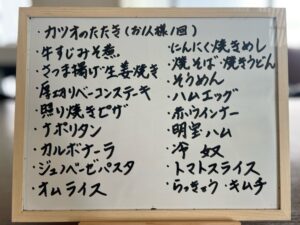 ・カツオのたたき(お1人様1回)
・牛すじみそ煮
・さつま揚げ生姜焼き
・厚切りベーコンステーキ
・照り焼きピザ
・ナポリタン
・カルボナーラ
・ジェノベーゼパスタ
・オムライス
・にんにく焼きめし
・焼そば・焼きうどん
・そうめん
・ハムエッグ
・赤いウインナー
・明宝ハム
・冷奴
・トマトスライス
・らっきょう・キムチ